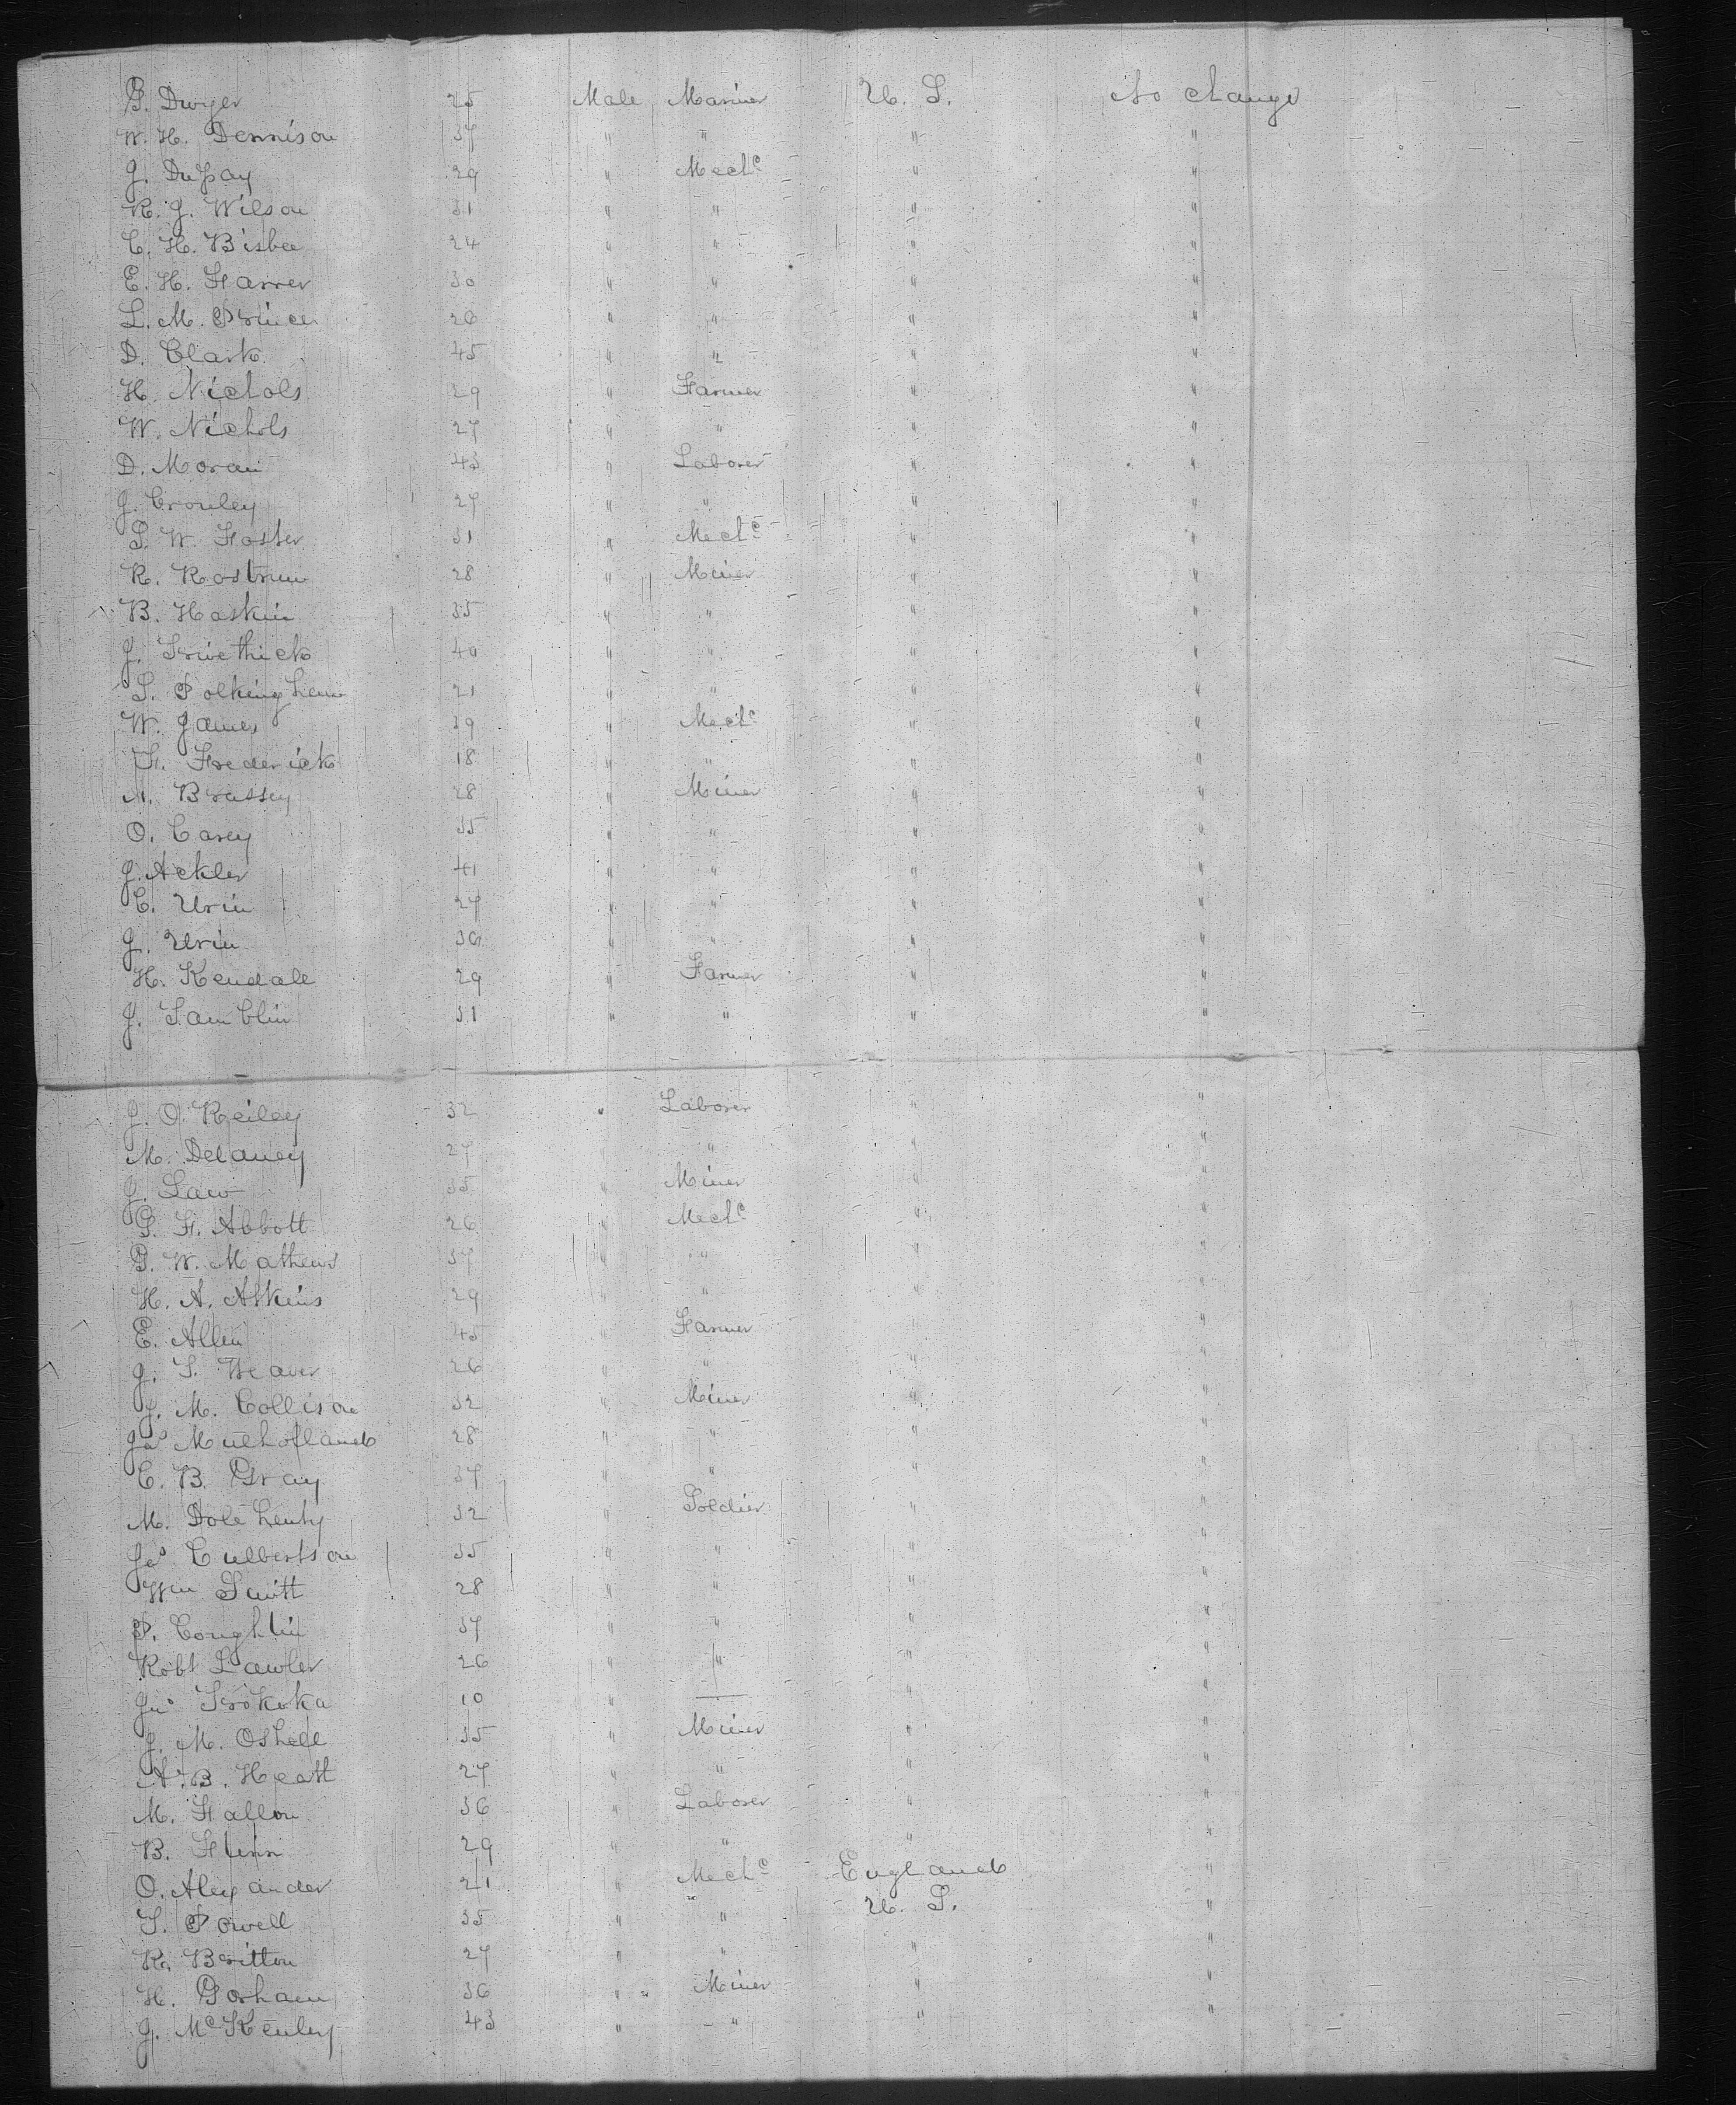 P. Dwyer 25 Male Mariner U. S. No change
W. H. Dennison 37 " " " "
J. DuPay 29 " Mech.c " "
R. J. Wilson 31 " " " "
C. H. Bisbee 24 " " " "
E. H. Farrer 30 " " " "
L. M. Prince 26 " " " "
D. Clark 45 " " " "
H. Nichols 29 " Farmer " "
W. Nichols 27 " " " "
D. Moran 43 " Laborer " "
J. Crouley 27 " " " "
S. W. Foster 31 " Mech.c " "
R. Rostrum 28 " Miner " "
B. Haskin 35 " " " "
J. Trivethick 40 " " " "
S. Polkingham 21 " " " "
W. James 39 " Mech.c " "
F. Frederick 18 " " " "
A. Brassey 28 " Miner " "
O. Casey 35 " " " "
J. Ackler 41 " " " "
C. Urin 27 " " " "
J. Urin 36 " " " "
H. Kendall 29 " Farmer " "
J. Tamblin 31 " " " "
J. O. Reiley 32 " Laborer " "
M. Delaney 27 " " " "
J. Law 35 " Miner " "
G. F. Abbott 26 " Mech.c " "
P. W. Mathews 37 " " " "
H. A. Atkins 29 " " " "
E. Allen 45 " Farmer " "
J. T. Weaver 26 " " " "
J. M. Collison 32 " Miner " "
Jas Mulhofland 28 " " " "
C. B. Gray 37 " " " "
M. Dole 32 " Soldier " "
Jas Culbertson 35 " " " "
Wm Smitt 28 " " " "
P. Coughlin 37 " " " "
Robt Lawler 26 " " " "
Jno Trokoka 10 " — " "
J. M. Oshell 35 " Miner " "
A. B. Heatt 27 " " " "
M. Fallon 36 " Laborer " "
B. Flinn 29 " " " "
O. Alexander 21 " Mech.c England "
T. Powell 35 " " U. S. "
R. Britton 27 " " " "
H. Gorham 36 " Miner " "
J. McKenley 43 " " " "